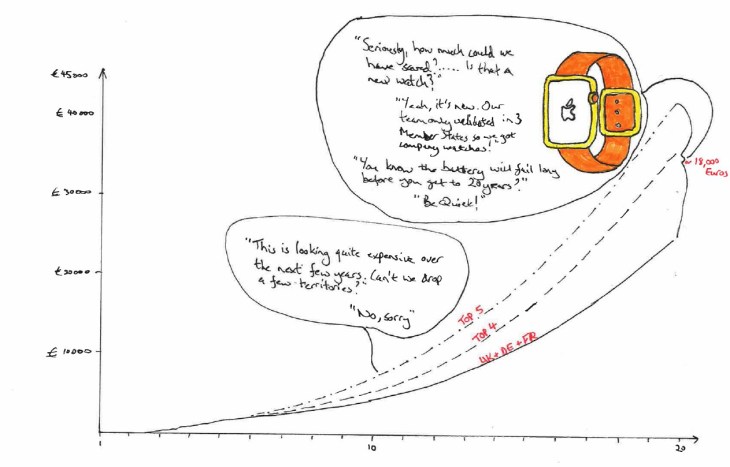 "Seriously, how much could we
have saved?..... Is that a
new watch?"
"Yeah, it's new. Our
team only validated in 3
Member States so we got
company watches!"
"You know the battery will fail long
before you get to 20 years?"
"Be Quick!"
€45000
€40000
€30000
€20000
€10000
~18,000
Euros
"This is looking quite expensive over
the next few years. Can't we drop
a few territories?"
"No, sorry"
TOP 5
TOP 4
UK+DE+FR
1
10
20